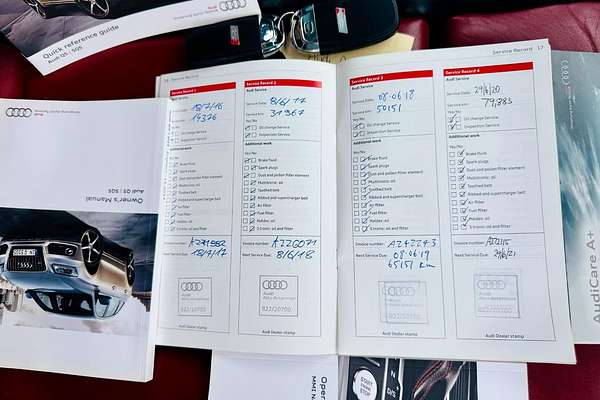 Quick reference guide
Audi Q5 | SQ5
Audi
Owner's Manual
Audi Q5 / SQ5
Service Record
Service Record 1
Audi Service
18/7/16
14326
Oil change Service
Inspection Service
Additional work
Brake fluid
Spark plugs
Multitronic: oil
Toothed belt
Air filter
Fuel filter
Haldex: oil
Invoice number
Next Service Due
18/7/17
922/20700
Audi Dealer stamp
Service Record 2
Audi Service
Service Date: 8/6/17
Service km: 31967
Yes/No
Oil change Service
Inspection Service
Additional work
Yes/No
Brake fluid
Spark plugs
Dust and pollen filter element
Multitronic: oil
Toothed belt
Ribbed and supercharger belt
Air filter
Fuel filter
Haldex: oil
S tronic: oil and filter
Invoice number: A226071
Next Service Due: 8/6/18
Audi
922/20700
Audi Dealer stamp
Service Record 17
Service Record 3
Audi Service
Service Date: 08-06-18
Service km: 50151
Yes/No
Oil change Service
Inspection Service
Additional work
Yes/No
Brake fluid
Spark plugs
Dust and pollen filter element
Multitronic: oil
Toothed belt
Ribbed and supercharger belt
Air filter
Fuel filter
Haldex: oil
S tronic: oil and filter
Invoice number: A242243
Next Service Due: 08-06-19
65151 km
Audi
Audi Dealer stamp
Service Record 4
Audi Service
Service Date: 29/6/20
Service km: 79,883
Yes/No
Oil change Service
Inspection Service
Additional work
Yes/No
Brake fluid
Spark plugs
Dust and pollen filter element
Multitronic: oil
Toothed belt
Ribbed and supercharger belt
Air filter
Fuel filter
Haldex: oil
S tronic: oil and filter
Invoice number:
Next Service Due: 29/6/21
Audi
922/20700
Audi Dealer stamp
AudiCare A+
START
ENGINE
STOP
N
D/S